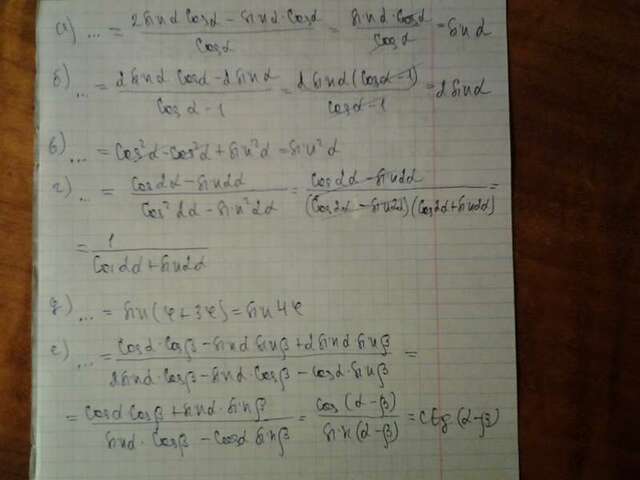 а) ... = (2sinα cosα - sinα·cosα)/cosα = (sinα·cosα)/cosα = sinα
б) ... = (2sinα cosα - 2sinα)/(cosα - 1) = (2sinα(cosα - 1))/(cosα - 1) = 2sinα
в) ... = cos²α - cos²α + sin²α = sin²α
г) ... = (cos2α - sin2α)/(cos²2α - sin²2α) = (cos2α - sin2α)/((cos2α - sin2α)(cos2α + sin2α)) =
= 1/(cos2α + sin2α)
д) ... = sin(φ + 3φ) = sin4φ
е) ... = (cosα·cosβ - sinα sinβ + 2sinα sinβ)/(2sinα·cosβ - sinα·cosβ - cosα·sinβ) =
= (cosα cosβ + sinα·sinβ)/(sinα·cosβ - cosα sinβ) = cos(α-β)/sin(α-β) = ctg(α-β)